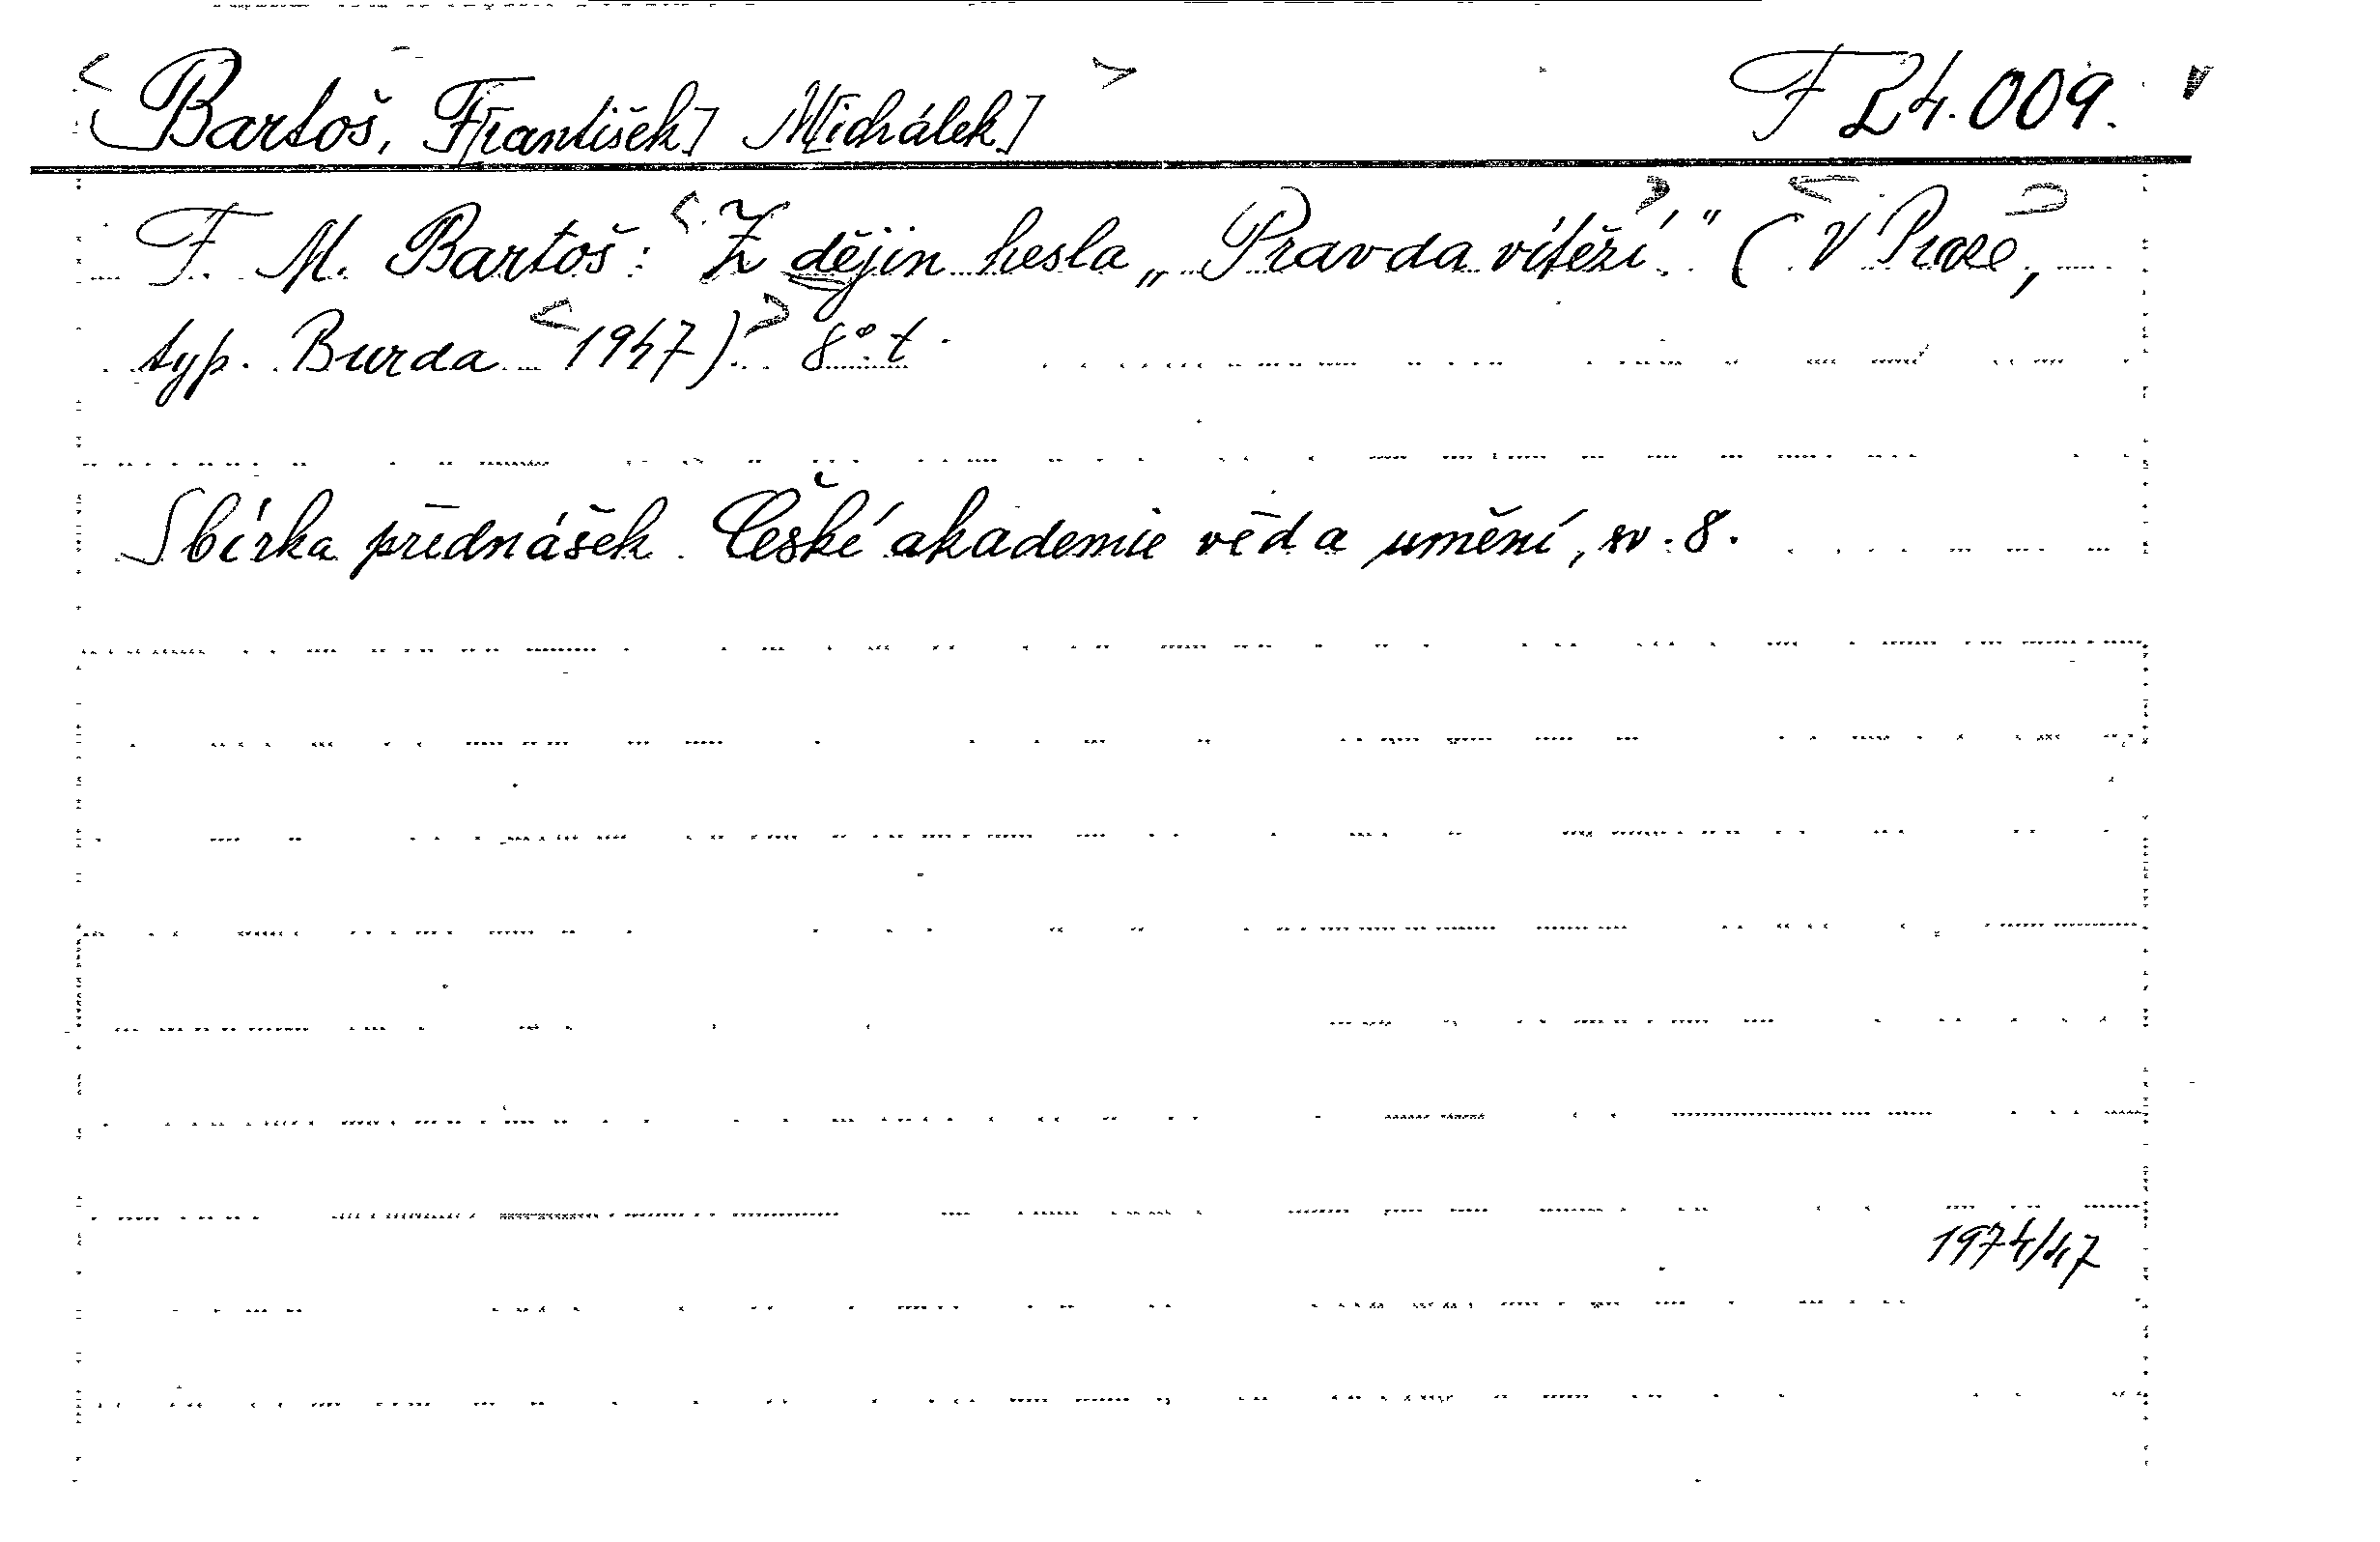 Bartoš, F[rantišek] M[ichálek] F 24.009.
F. M. Bartoš: Z dějin hesla „Pravda vítězí." (V Praze,
typ. Burda 1947). 8° t.
Sbírka přednášek České akademie věd a umění, sv. 8.
1974/47